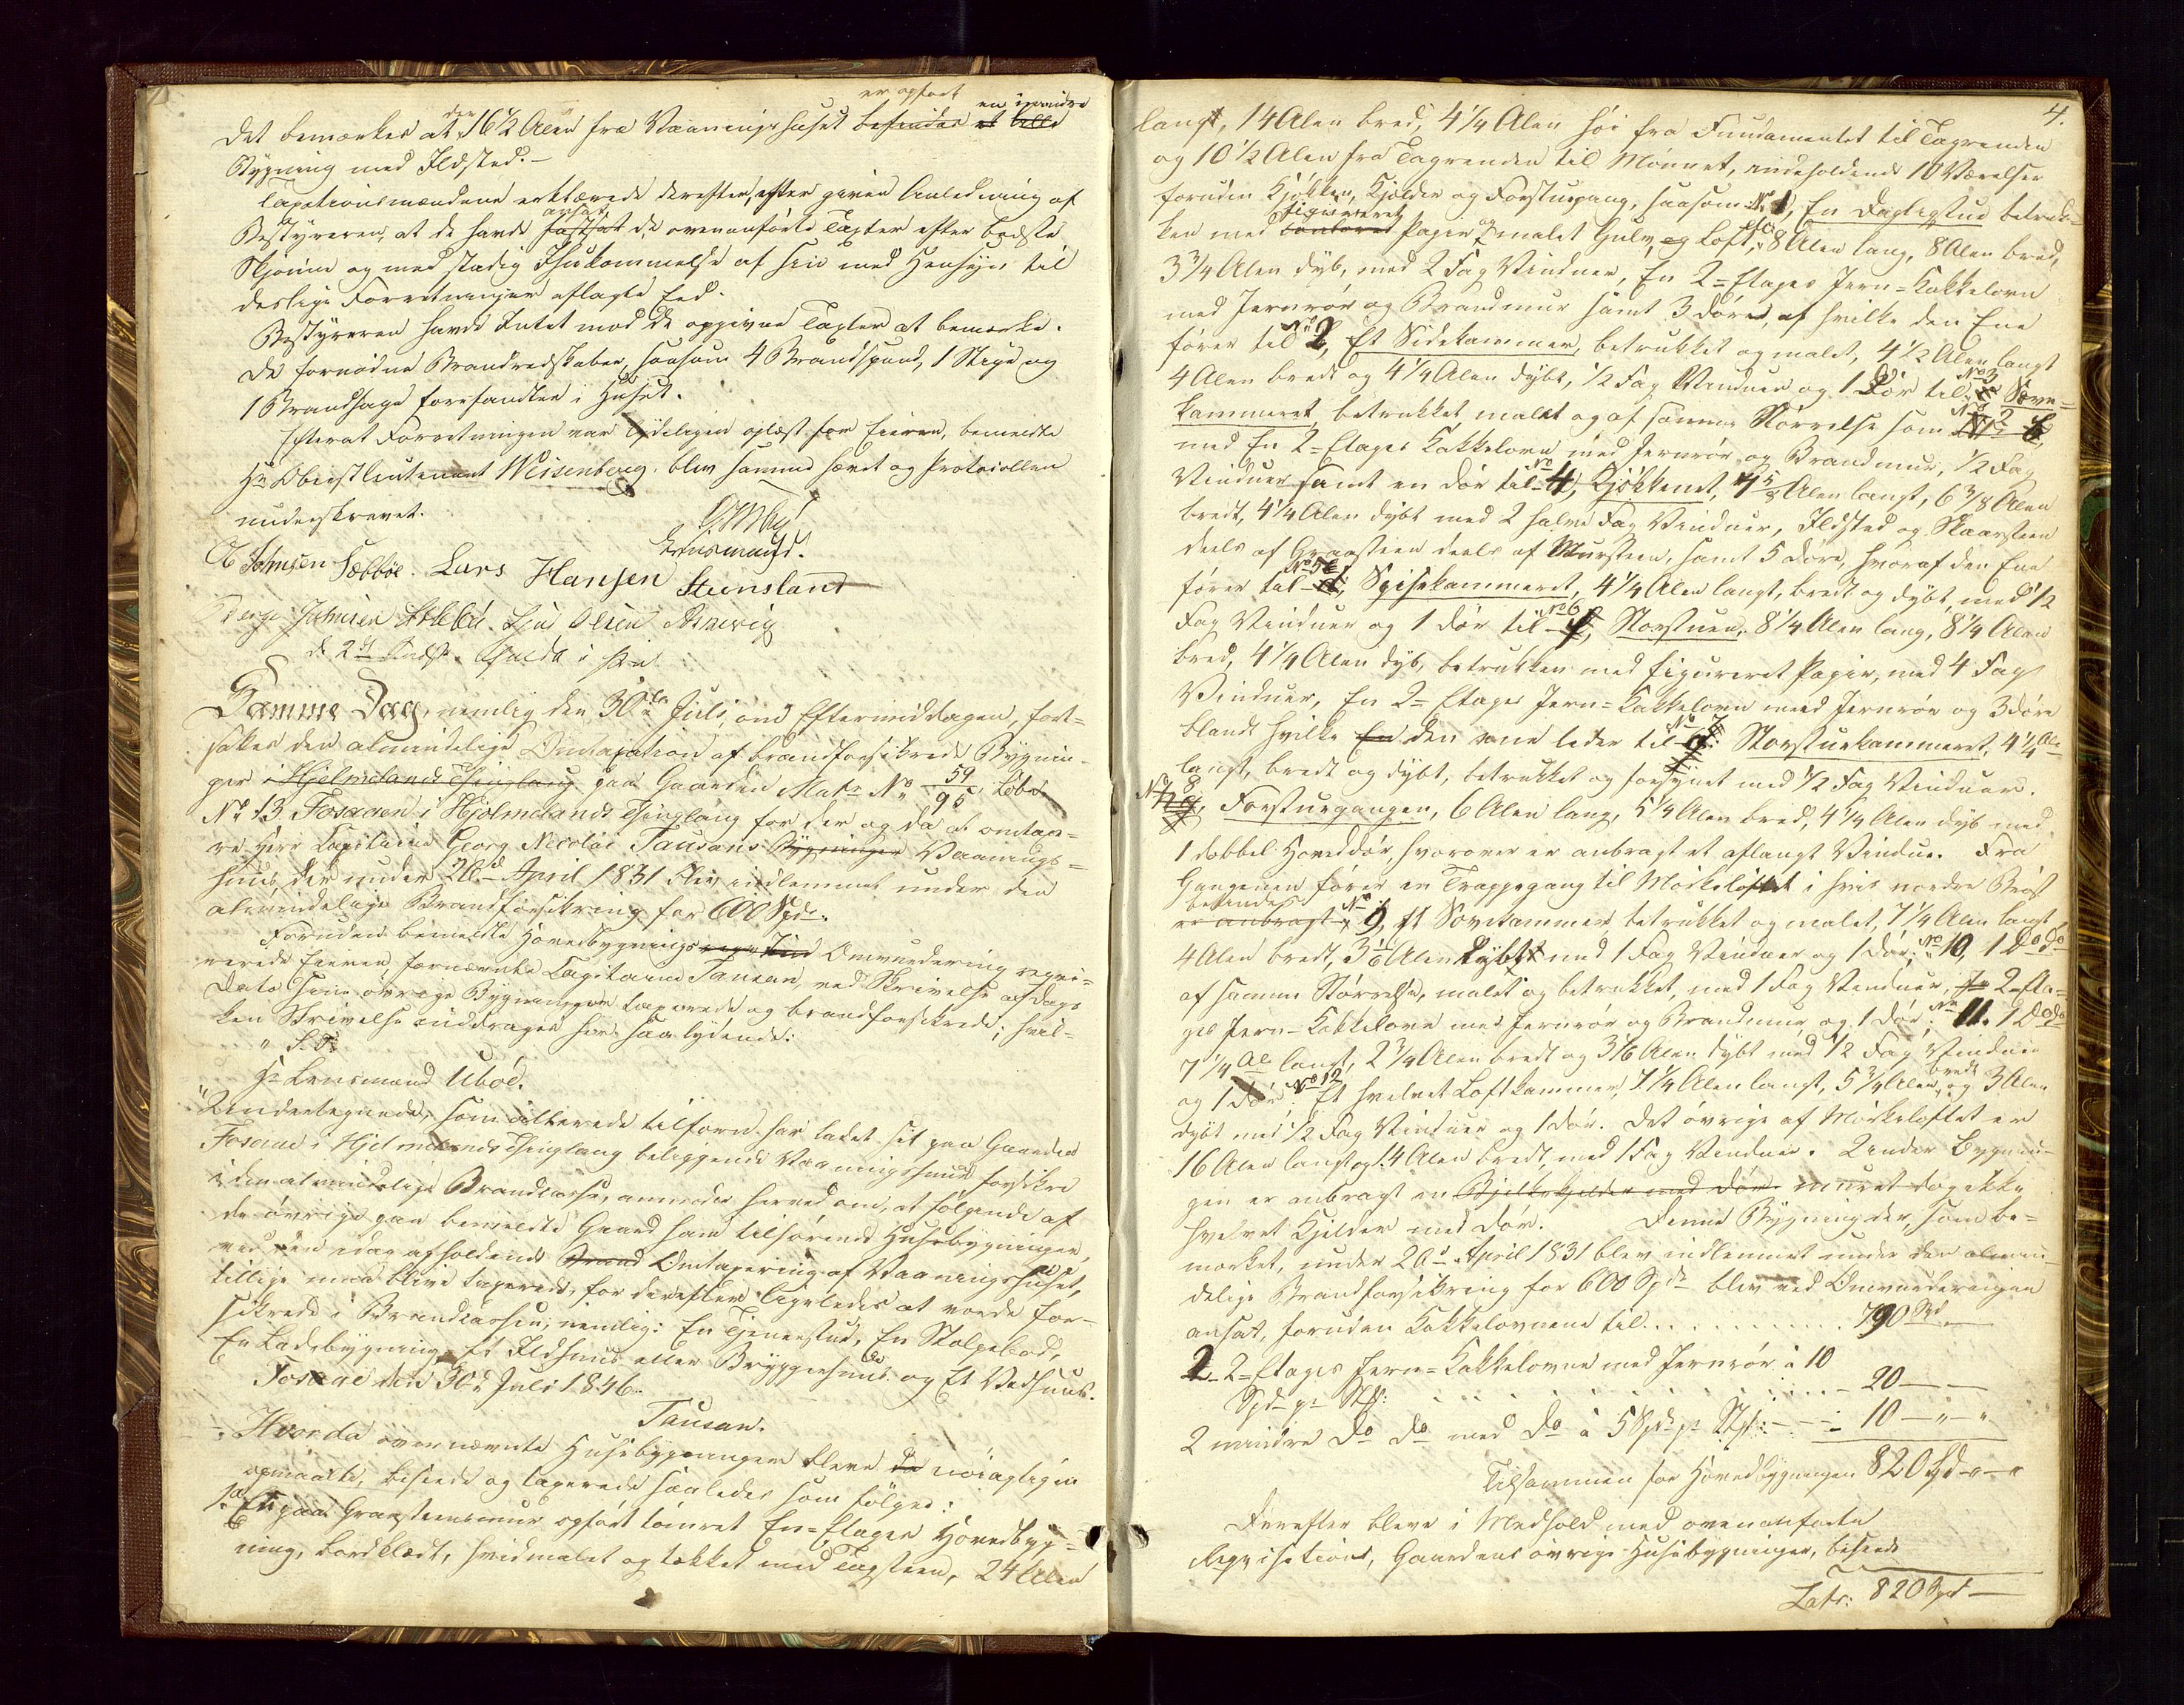 er opført en mindre
Det bemærkes at der 16½ Alen fra Vaaningshuset befindes et lille
Bygning med Ildsted.-
Taxationsmændene erklærede derefter, efter given Anledning af
Bestyreren, at de havde ansat fastsat de ovenanførte Taxter efter bedste
Skjønne og med stadig Ihukommelse af sin med Hensyn til
deslige Forretninger aflagte Eed.
Bestyreren havde Intet mod de opgivne Taxter at bemærke.
De fornødne Brandredskaber, saasom 4 Brandspand, 1 Stige og
1 Brandhage forefandtes i Huset.
Efterat Forretningen var tydeligen oplæst for Eieren, bemeldte
Hr Oberstlieutenant Weisenberg, blev samme hævet og Protocollen
underskrevet.
Lensmand.
Johnsen Sæbbøe. Lars Hansen Steensland
Johnsen Sjur Olsen
d: 2de Sidste. Gjælda i P:
Samme Dag, nemlig den 30te Juli, om Eftermiddagen, fort-
sattes den almindelige Omtaxation af brandforsikrede Bygnin-
ger i Hjelmelands Thinglaug paa Gaarden Matr No 59/95, Løbe
No 13 Fosaaen i Hjelmelands Thinglaug for der og da at omtaxe-
re Herr Capitaine Georg Nicolai Tausans Bygninger Vaanings-
huus, der under 20d April 1831 blev indlemmet under den
almindelige Brandforsikring for 600 Spd.
Foruden bemeldte Hovedbygnings Omvurdering reqvi-
rerede Eieren fornævnte Capitaine Tausan, ved Skrivelse af Dags
Dato sine øvrige Bygninger taxerede og brandforsikrede; hvil-
ken Skrivelse inddrages her saa lydende:
" S. T.
Hr Lensmand Uboe.
"Undertegnede, som allerede tilforn har ladet sit paa Gaarden
Fosaae i Hjelmelands Thinglaug beliggende Vaaningshuus forsikre
i den almindelige Brandcasse, anmoder herved om, at følgende af
de øvrige paa bemeldte Gaard ham tilhørende Huusbygninger,
ved den idag afholdende Brand Omtaxering af Vaaningshuset,
tillige maa blive taxerede, for derefter ligeledes at vorde for-
sikrede i Brandcassen, nemlig: En Tjenerstue, En Stolpebod,
En Ladebygning, Et Ildhuus eller Bryggerhuus og Et Vedhuus.
Fosaae den 30te Juli 1846.
Tausan.
Hvorda overnævnte Huusbygninger bleve da nøiagtigen
opmaalte, beseede og taxerede saaledes som følger:
1o En paa Graasteensmuur opført tømret En-Etages Hovedbyg-
ning, bordklædt, hvidmalet og tækket med Tagsteen, 24 Alen
4.
lang, 14 Alen bred, 4¼ Alen høi fra Fundamentet til Tagrenden
og 10½ Alen fra Tagrenden til Mønnet, indeholdende 10 Værelser
foruden Kjøkken, Kjelder og Forstuegang, saasom: No 1, En Dagligstue betruk-
figureret og
ken med couleret Papir malet Gulv og Loft, 8 Alen lang, 8 Alen bred,
3¾ Alen dyb, med 2 Fag Vinduer, En 2-Etages Jern-Kakkelovn
med Jernrør og Brandmuur samt 3 Døre, af hvilke den Ene
fører til No 2, Et Sidekammer, betrukket og malet, 4½ Alen langt
4 Alen bredt og 4¼ Alen dybt, ½ Fag Vinduer og 1 Dør til No 3 Sove-
kammeret, betrukket malet og af samme Størrelse som No 2
med En 2-Etages Kakkelovn med Jernrør og Brandmuur, ½ Fag
Vinduer samt en Dør til No 4, Kjøkkenet, 7⅝ Alen langt, 6⅜ Alen
bredt, 4¼ Alen dybt med 2 halve Fag Vinduer, Ildsted og Skaarsteen
deels af Graasteen deels af Muursteen, samt 5 Døre, hvoraf den Ene
fører til No 5 Spisekammeret, 4¼ Alen langt, bredt og dybt, med ½
Fag Vinduer og 1 Dør til No 6 Storstuen, 8¼ Alen lang, 8¼ Alen
bred, 4¼ Alen dyb, betrukken med figureret Papir, med 4 Fag
Vinduer, En 2-Etages Jern-Kakkelovn med Jernrør og 3 Døre
blandt hvilke En den ene leder til No 7 Storstuekammeret, 4¼ Al:
langt, bredt og dybt, betrukket og forsynet med ½ Fag Vinduer.
No 8 Forstuegangen, 6 Alen lang, 5¼ Alen bred, 4¼ Alen dyb med
1 dobbel Hoveddør, hvorover er anbragt et aflangt Vindue. Fra
Gangenen fører en Trappegang til Mørkeloftet i hvis nordre Brøst
befindes
er anbragt No 9, Et Sovekammer betrukket og malet, 7¼ Alen langt
4 Alen bredt, 3⅙ Alen dybt med 1 Fag Vinduer og 1 Dør; No 10, 1 Do Do
af samme Størrelse, malet og betrukket, med 1 Fag Vinduer, 2-Eta-
ges Jern-Kakkelovn med Jernrør og Brandmuur og 1 Dør; No 11. 1 Do Do
7¼ Al langt, 2¾ Alen bredt og 3⅙ Alen dybt med ½ Fag Vinduer
og 1 Dør. No 12 Et hvelvet Loftkammer, 7¼ Alen langt, 5¾ Alen bredt og 3 Alen
dybt med ½ Fag Vinduer og 1 Dør. Det øvrige af Mørkeloftet er
16 Alen langt og 14 Alen bredt, med 1 Fag Vinduer. Under Bygnin-
gen er anbragt en Bjelkekjelder med Dør. muret dog ikke
hvelvet Kjelder med Dør. Denne Bygning der, som be-
mærket, under 20d April 1831 blev indlemmet under den almin-
delige Brandforsikring for 600 Spd blev ved Omvurderingen
ansat, foruden Kakkelovnene til . . . . . . . . . . . 790 Spd
2 2-Etages Jern-Kakkelovne med Jernrør à 10
Spd pr Stk: . . . . . . . . . . . - 20 - -
2 mindre Do Do med Do à 5 Spd pr Stk: - - - 10 - " - "
Tilsammen for Hovedbygningen 820 Spd - " - "
Derefter bleve i Medhold med ovenanførte
Reqvisition, Gaardens øvrige Huusbygninger, beseede
Latr: 820 Spd -